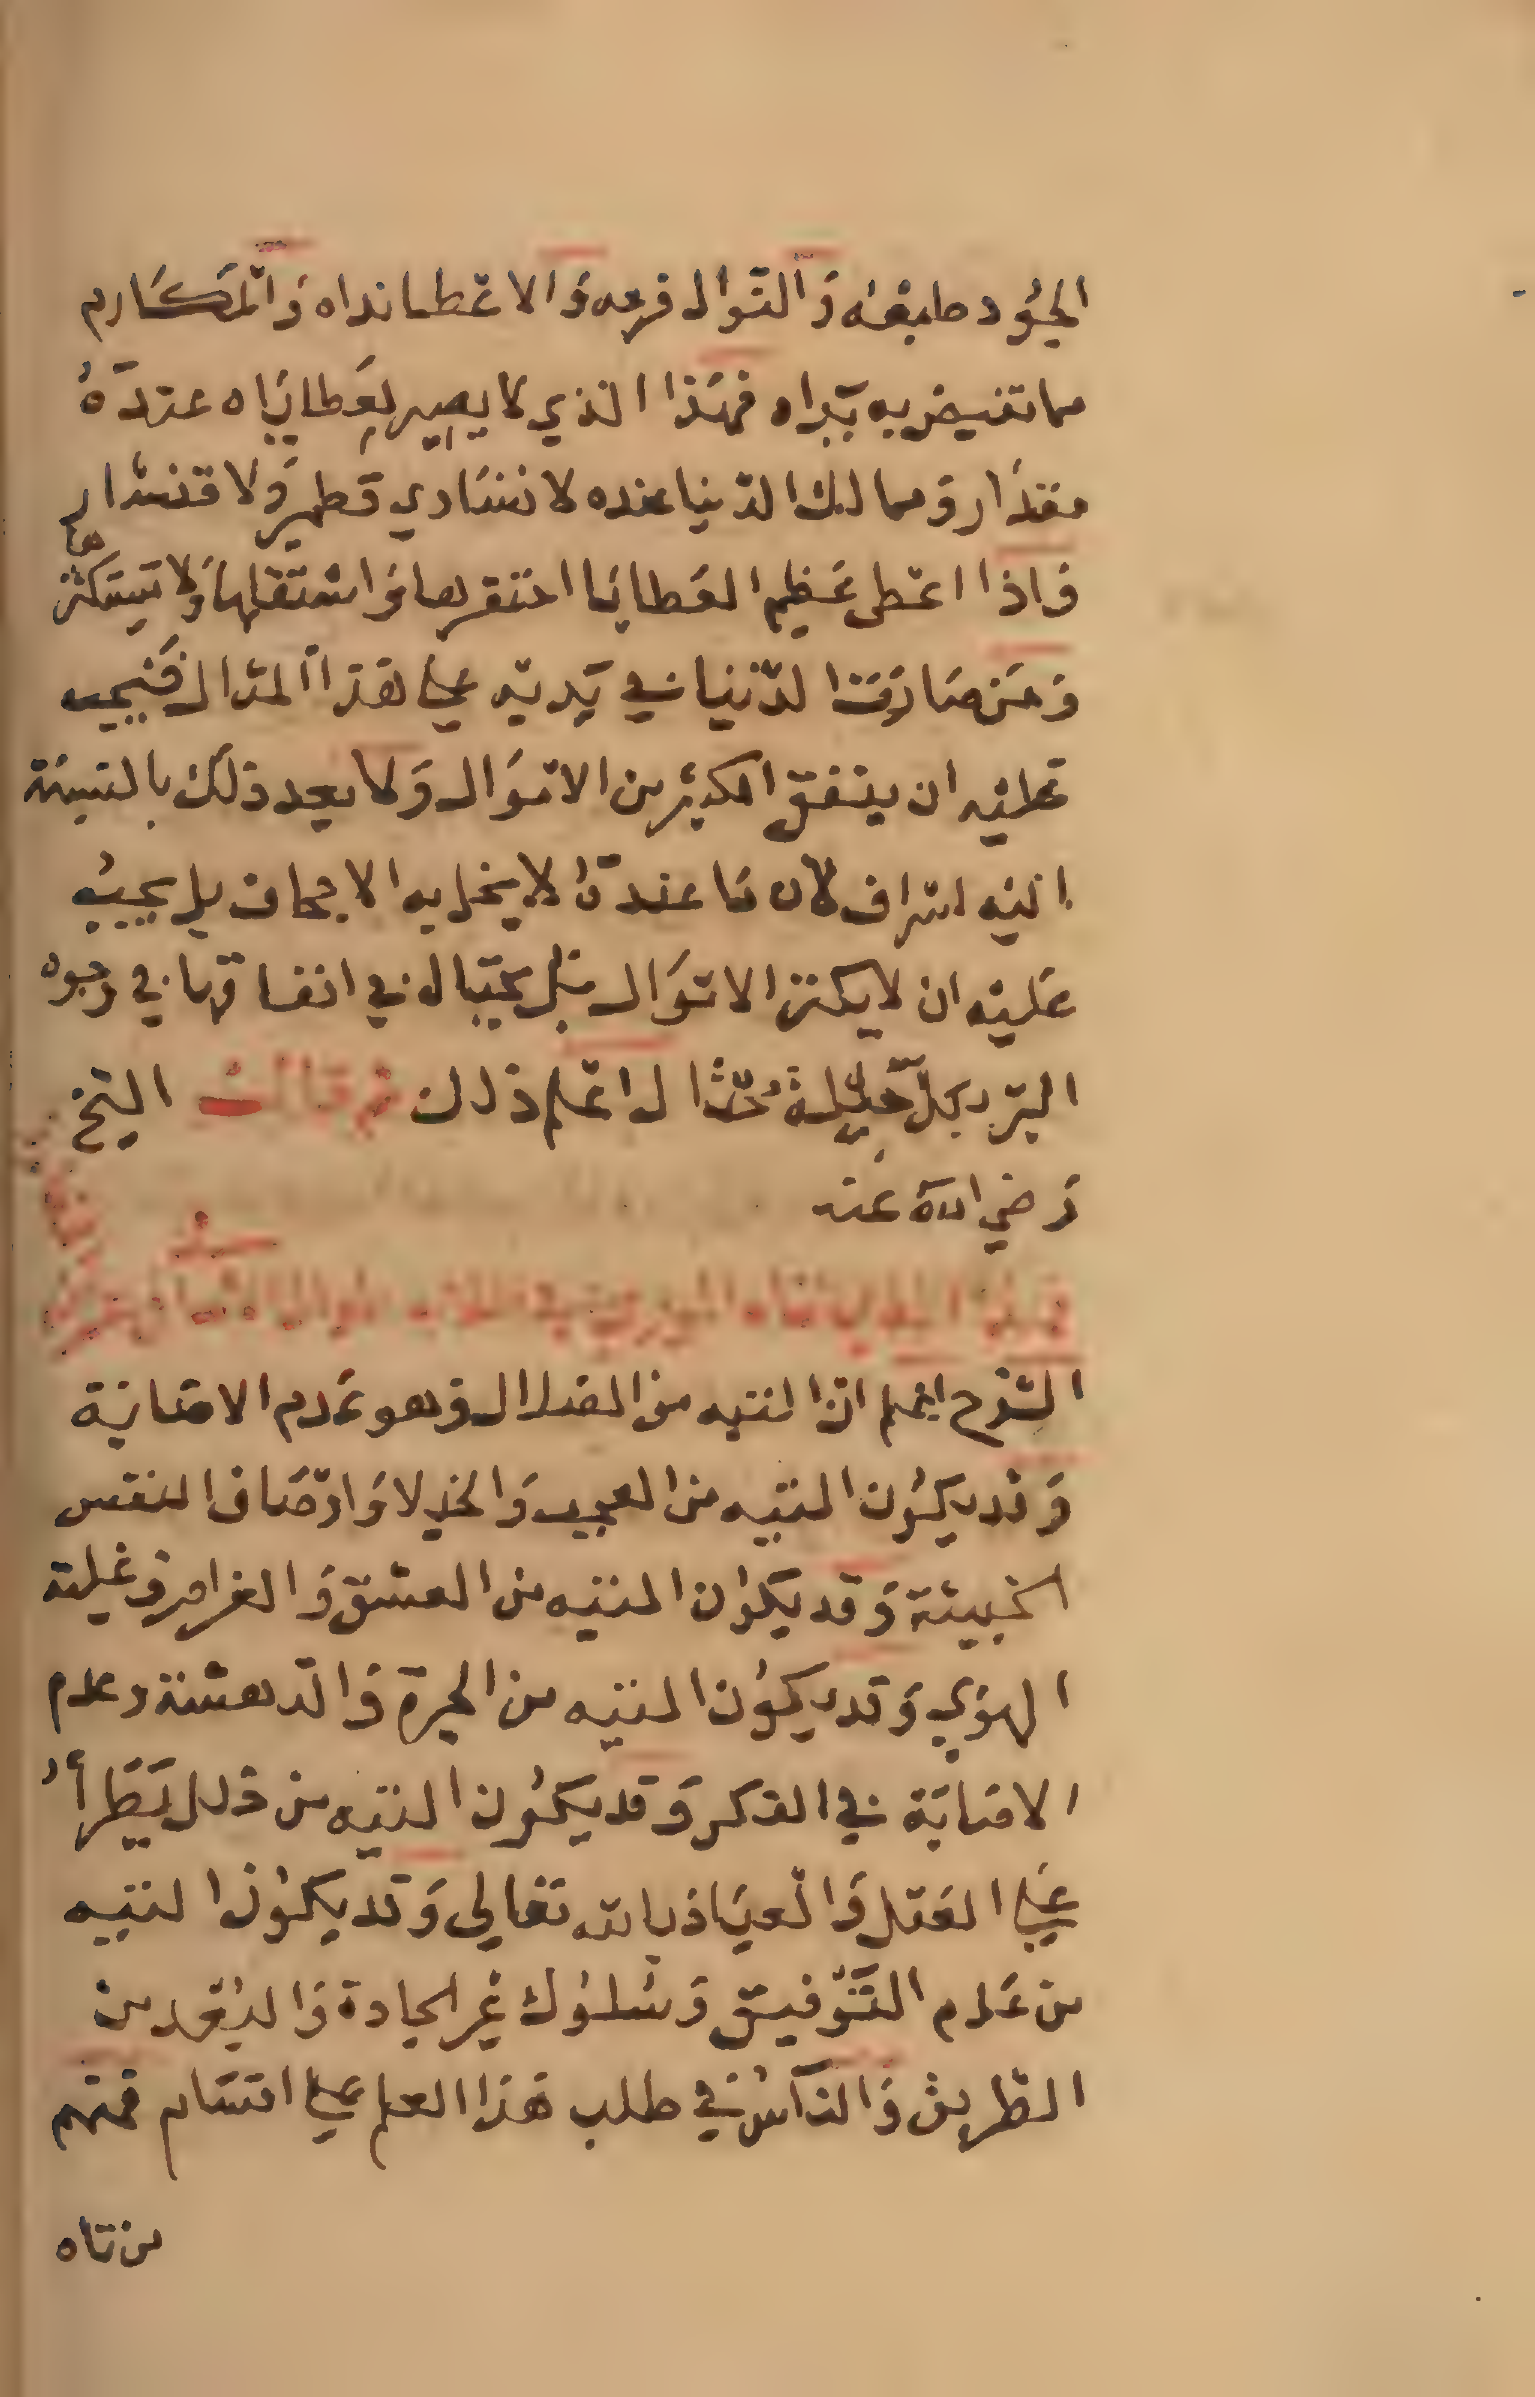 الجُود طبعه وَالنّوال فرعه وَالاعْطا نداه وَالمكَارم
مما تفيض به يَداه فهَذا الذي لا يصير لِعَطايَاه عندهُ
مقدَار وَممالك الدّنيا عنده لا تسَاوي قطمير وَلا قنطار
فَاذا اعْطى عَظيم العَطايَا احتقرها وَاسْتقلها وَلا يَستكثرها
وَمَن صَارَت الدّنيا في يَديْه على هَذا المثال فيَجب
عَليْه ان ينفق الكثير من الامْوَال وَلا يعد ذلكَ بالنسبَة
اليْه اسْراف لان مَا عندهُ لا يخل به الاجحاف بل يجبُ
عَليْه ان لا يكنز الامْوَال بَل يحتال في انفاقها في وجوه
البرّ بكلّ حيلة مُحْتال اعْلم ذلك ثم قال الشيخ
رَضي اللهُ عَنه
الشرْح اعْلم انّ التيه من الضلال وَهو عَدم الاصَابَة
وَقد يكوُن التيه من العجب وَالخيلا وَاوْصَاف النفس
الخبيثة وَقد يكوُن التيه من العشق وَالغرام وَغلبة
الهوَي وَقد يكوُن التيه من الحيرَة وَالدّهشة وعدم
الاصَابَة في الفكر وَقد يكوُن التيه من خلل يَطرَأُ
عَلى العَقل وَالعيَاذ بالله تعَالى وَقد يكوُن التيه
من عَدم التَّوْفيق وَسُلوُك غير الجادة وَالبُعْد من
الطّريق وَالناسُ في طلب هَذا العلم عَلى اقسَام فمنهم
من تاه